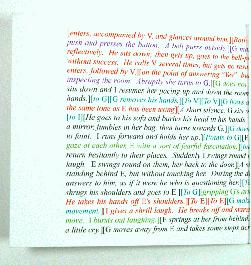 enters, accompanied by V, and glances around him.][Italy
push and presses the button. A bell purrs outside.][G ma
reflectively. He sits down, then gets up, goes to the bell-p
without success. He calls V several times, but gets no reso
enters, followed by V.][on the point of answering "Yes" but
inspecting the room. Abruptly she turns to G.][G goes to
sits down and I resumes her pacing up and down the room.
hands.][to G][G removes his hands.][To V][To V][G does
the same tone as E has been using][A short silence. G sits
[to I][He goes to his sofa and buries his head in his hands
a mirror, fumbles in her bag, then turns towards G.][G does
to faint. I runs forward and holds her up.][Frozen to G][E
gaze at each other, E with a sort of fearful fascination.]
return hesitantly to their places. Suddenly I swings round
laugh. E swings round on them, her back to the door.][A s
standing behind E, but without touching her. During the di
answers to him, as if it were he who is questioning her.][Th
shrugs his shoulders and goes to E][To E][gripping G's a
He takes his hands off E's shoulders.][To E][To E][G mak
movement.][I gives a shrill laugh. He breaks off and stares
move. I bursts out laughing.][E springs at her from behind
a little cry.][G moves away from E and takes some steps ac